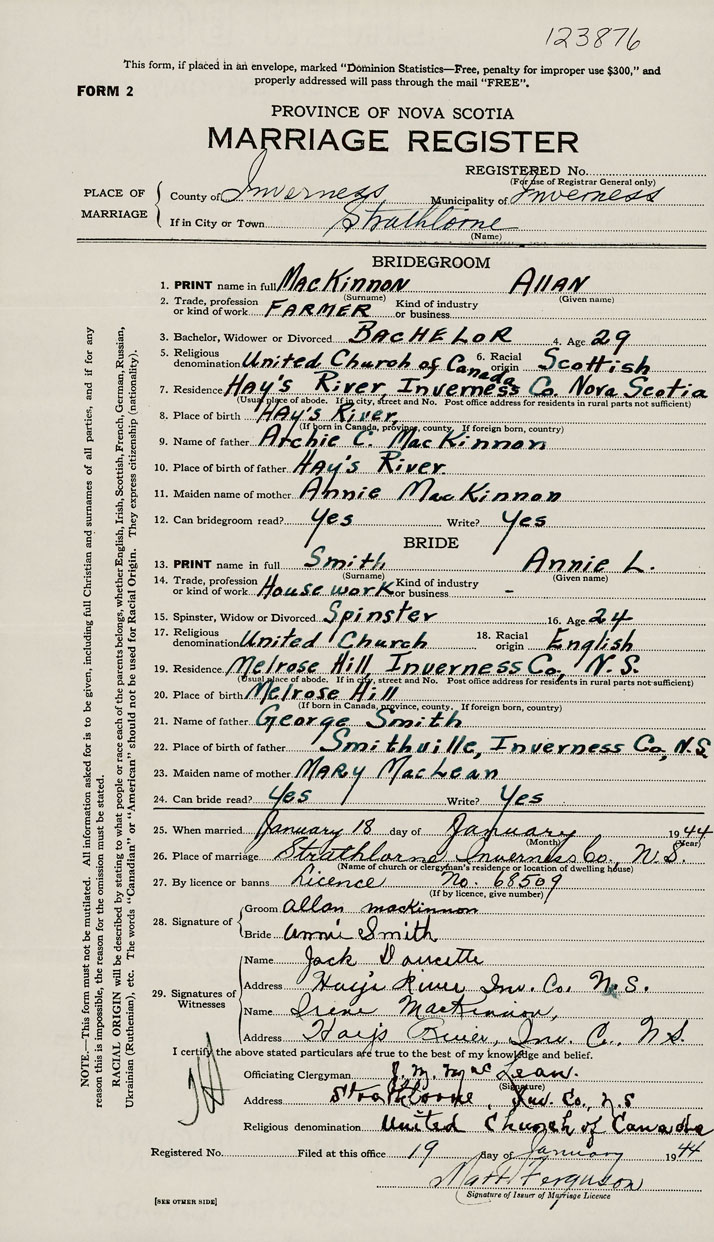 123876
This form, if placed in an envelope, marked "Dominion Statistics—Free, penalty for improper use $300," and
properly addressed will pass through the mail "FREE".
FORM 2
PROVINCE OF NOVA SCOTIA
MARRIAGE REGISTER
REGISTERED No.
(For use of Registrar General only)
PLACE OF MARRIAGE
County of Inverness Municipality of Inverness
If in City or Town Strathlorne
(Name)
BRIDEGROOM
1. PRINT name in full MacKinnon Allan
(Surname) (Given name)
2. Trade, profession or kind of work FARMER Kind of industry or business
3. Bachelor, Widower or Divorced BACHELOR 4. Age 29
5. Religious denomination United Church of Canada 6. Racial origin Scottish
7. Residence Hay's River, Inverness Co. Nova Scotia
(Usual place of abode. If in city, street and No. Post office address for residents in rural parts not sufficient)
8. Place of birth Hay's River,
(If born in Canada, province, county. If foreign born, country)
9. Name of father Archie C. MacKinnon
10. Place of birth of father Hay's River
11. Maiden name of mother Annie MacKinnon
12. Can bridegroom read? Yes Write? Yes
BRIDE
13. PRINT name in full Smith Annie L.
(Surname) (Given name)
14. Trade, profession or kind of work House work Kind of industry or business -
15. Spinster, Widow or Divorced Spinster 16. Age 24
17. Religious denomination United Church 18. Racial origin English
19. Residence Melrose Hill, Inverness Co, N.S.
(Usual place of abode. If in city, street and No. Post office address for residents in rural parts not sufficient)
20. Place of birth Melrose Hill
(If born in Canada, province, county. If foreign born, country)
21. Name of father George Smith
22. Place of birth of father Smithville, Inverness Co, N.S
23. Maiden name of mother MARY MacLean
24. Can bride read? Yes Write? Yes
25. When married January 18 day of January 1944
(Month) (Year)
26. Place of marriage Strathlorne Inverness Co., N.S.
(Name of church or clergyman's residence or location of dwelling house)
27. By licence or banns Licence No. 68509
(If by licence, give number)
28. Signature of
Groom allan mackinnon
Bride annie Smith
29. Signatures of Witnesses
Name Jack Doucette
Address Hays River Inv. Co. N.S.
Name Irene MacKinnon,
Address Hays River, Inv. C., N.S.
I certify the above stated particulars are true to the best of my knowledge and belief.
Officiating Clergyman J. M. MacLean.
(Signature)
Address Strathlorne, Inv. Co, N.S
Religious denomination United Church of Canada
Registered No. Filed at this office 19 day of January 1944
Matt Ferguson
Signature of Issuer of Marriage Licence
[SEE OTHER SIDE]
NOTE.—This form must not be mutilated. All information asked for is to be given, including full Christian and surnames of all parties, and if for any
reason this is impossible, the reason for the omission must be stated.
RACIAL ORIGIN will be described by stating to what people or race each of the parents belongs, whether English, Irish, Scottish, French, German, Russian,
Ukrainian (Ruthenian), etc. The words "Canadian" or "American" should not be used for Racial Origin. They express citizenship (nationality).